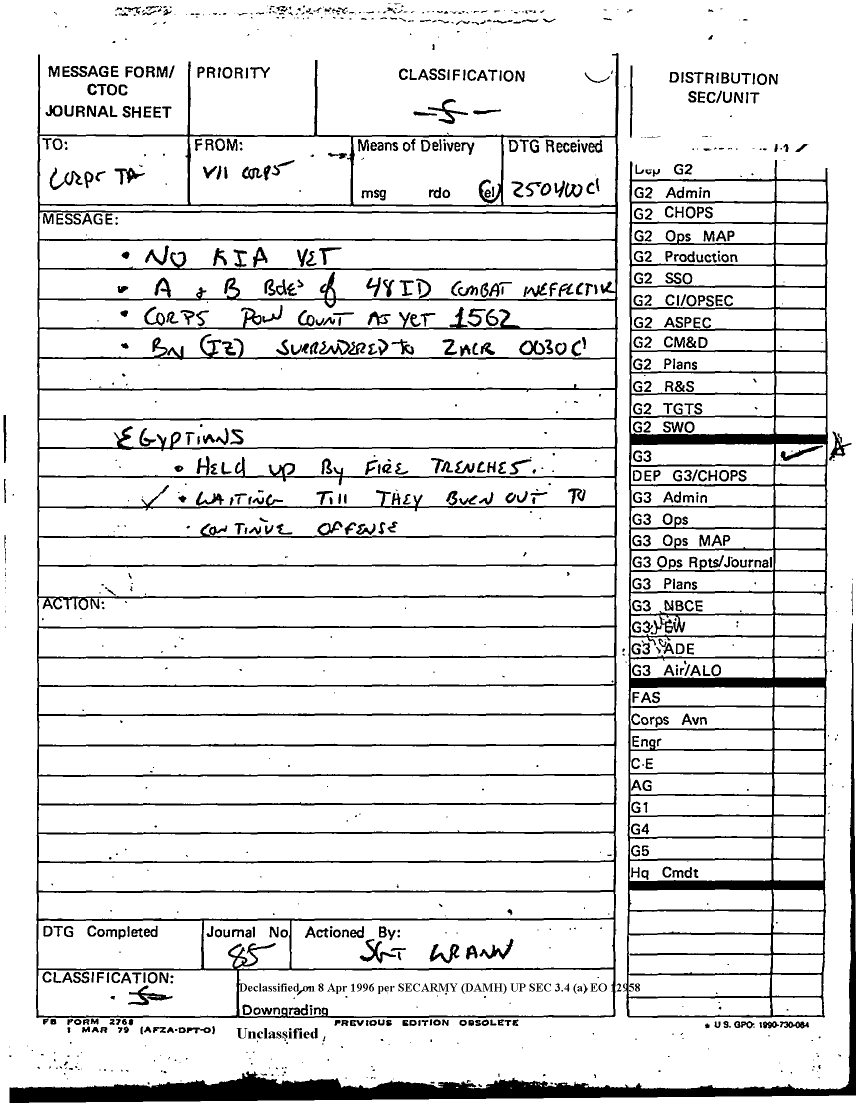 MESSAGE FORM/
CTOC
JOURNAL SHEET
PRIORITY
CLASSIFICATION
-S-
TO:
CORPS TA
FROM:
VII CORPS
Means of Delivery
msg rdo tel
DTG Received
250400C
MESSAGE:
• NO KIA YET
• A & B Bde's of 48 ID COMBAT INEFFECTIVE
• CORPS POW COUNT AS YET 1562
• BN (IZ) SURRENDERED TO 2ACR 0030C
EGYPTIANS
• HELD UP BY FIRE TRENCHES.
✓ • WAITING TILL THEY BURN OUT TO
• CONTINUE OFFENSE
ACTION:
DTG Completed
Journal No.
85
Actioned By:
SGT
CLASSIFICATION:
-S-
Declassified on 8 Apr 1996 per SECARMY (DAMH) UP SEC 3.4 (a) EO 12958
Downgrading
Unclassified
FB FORM 2768
1 MAR 79 (AFZA-DPT-O)
PREVIOUS EDITION OBSOLETE
DISTRIBUTION
SEC/UNIT
Dep G2
G2 Admin
G2 CHOPS
G2 Ops MAP
G2 Production
G2 SSO
G2 CI/OPSEC
G2 ASPEC
G2 CM&D
G2 Plans
G2 R&S
G2 TGTS
G2 SWO
G3 ✓
DEP G3/CHOPS
G3 Admin
G3 Ops
G3 Ops MAP
G3 Ops Rpts/Journal
G3 Plans
G3 NBCE
G3 EW
G3 ADE
G3 Air/ALO
FAS
Corps Avn
Engr
C-E
AG
G1
G4
G5
Hq Cmdt
* U.S. GPO: 1990-730-084